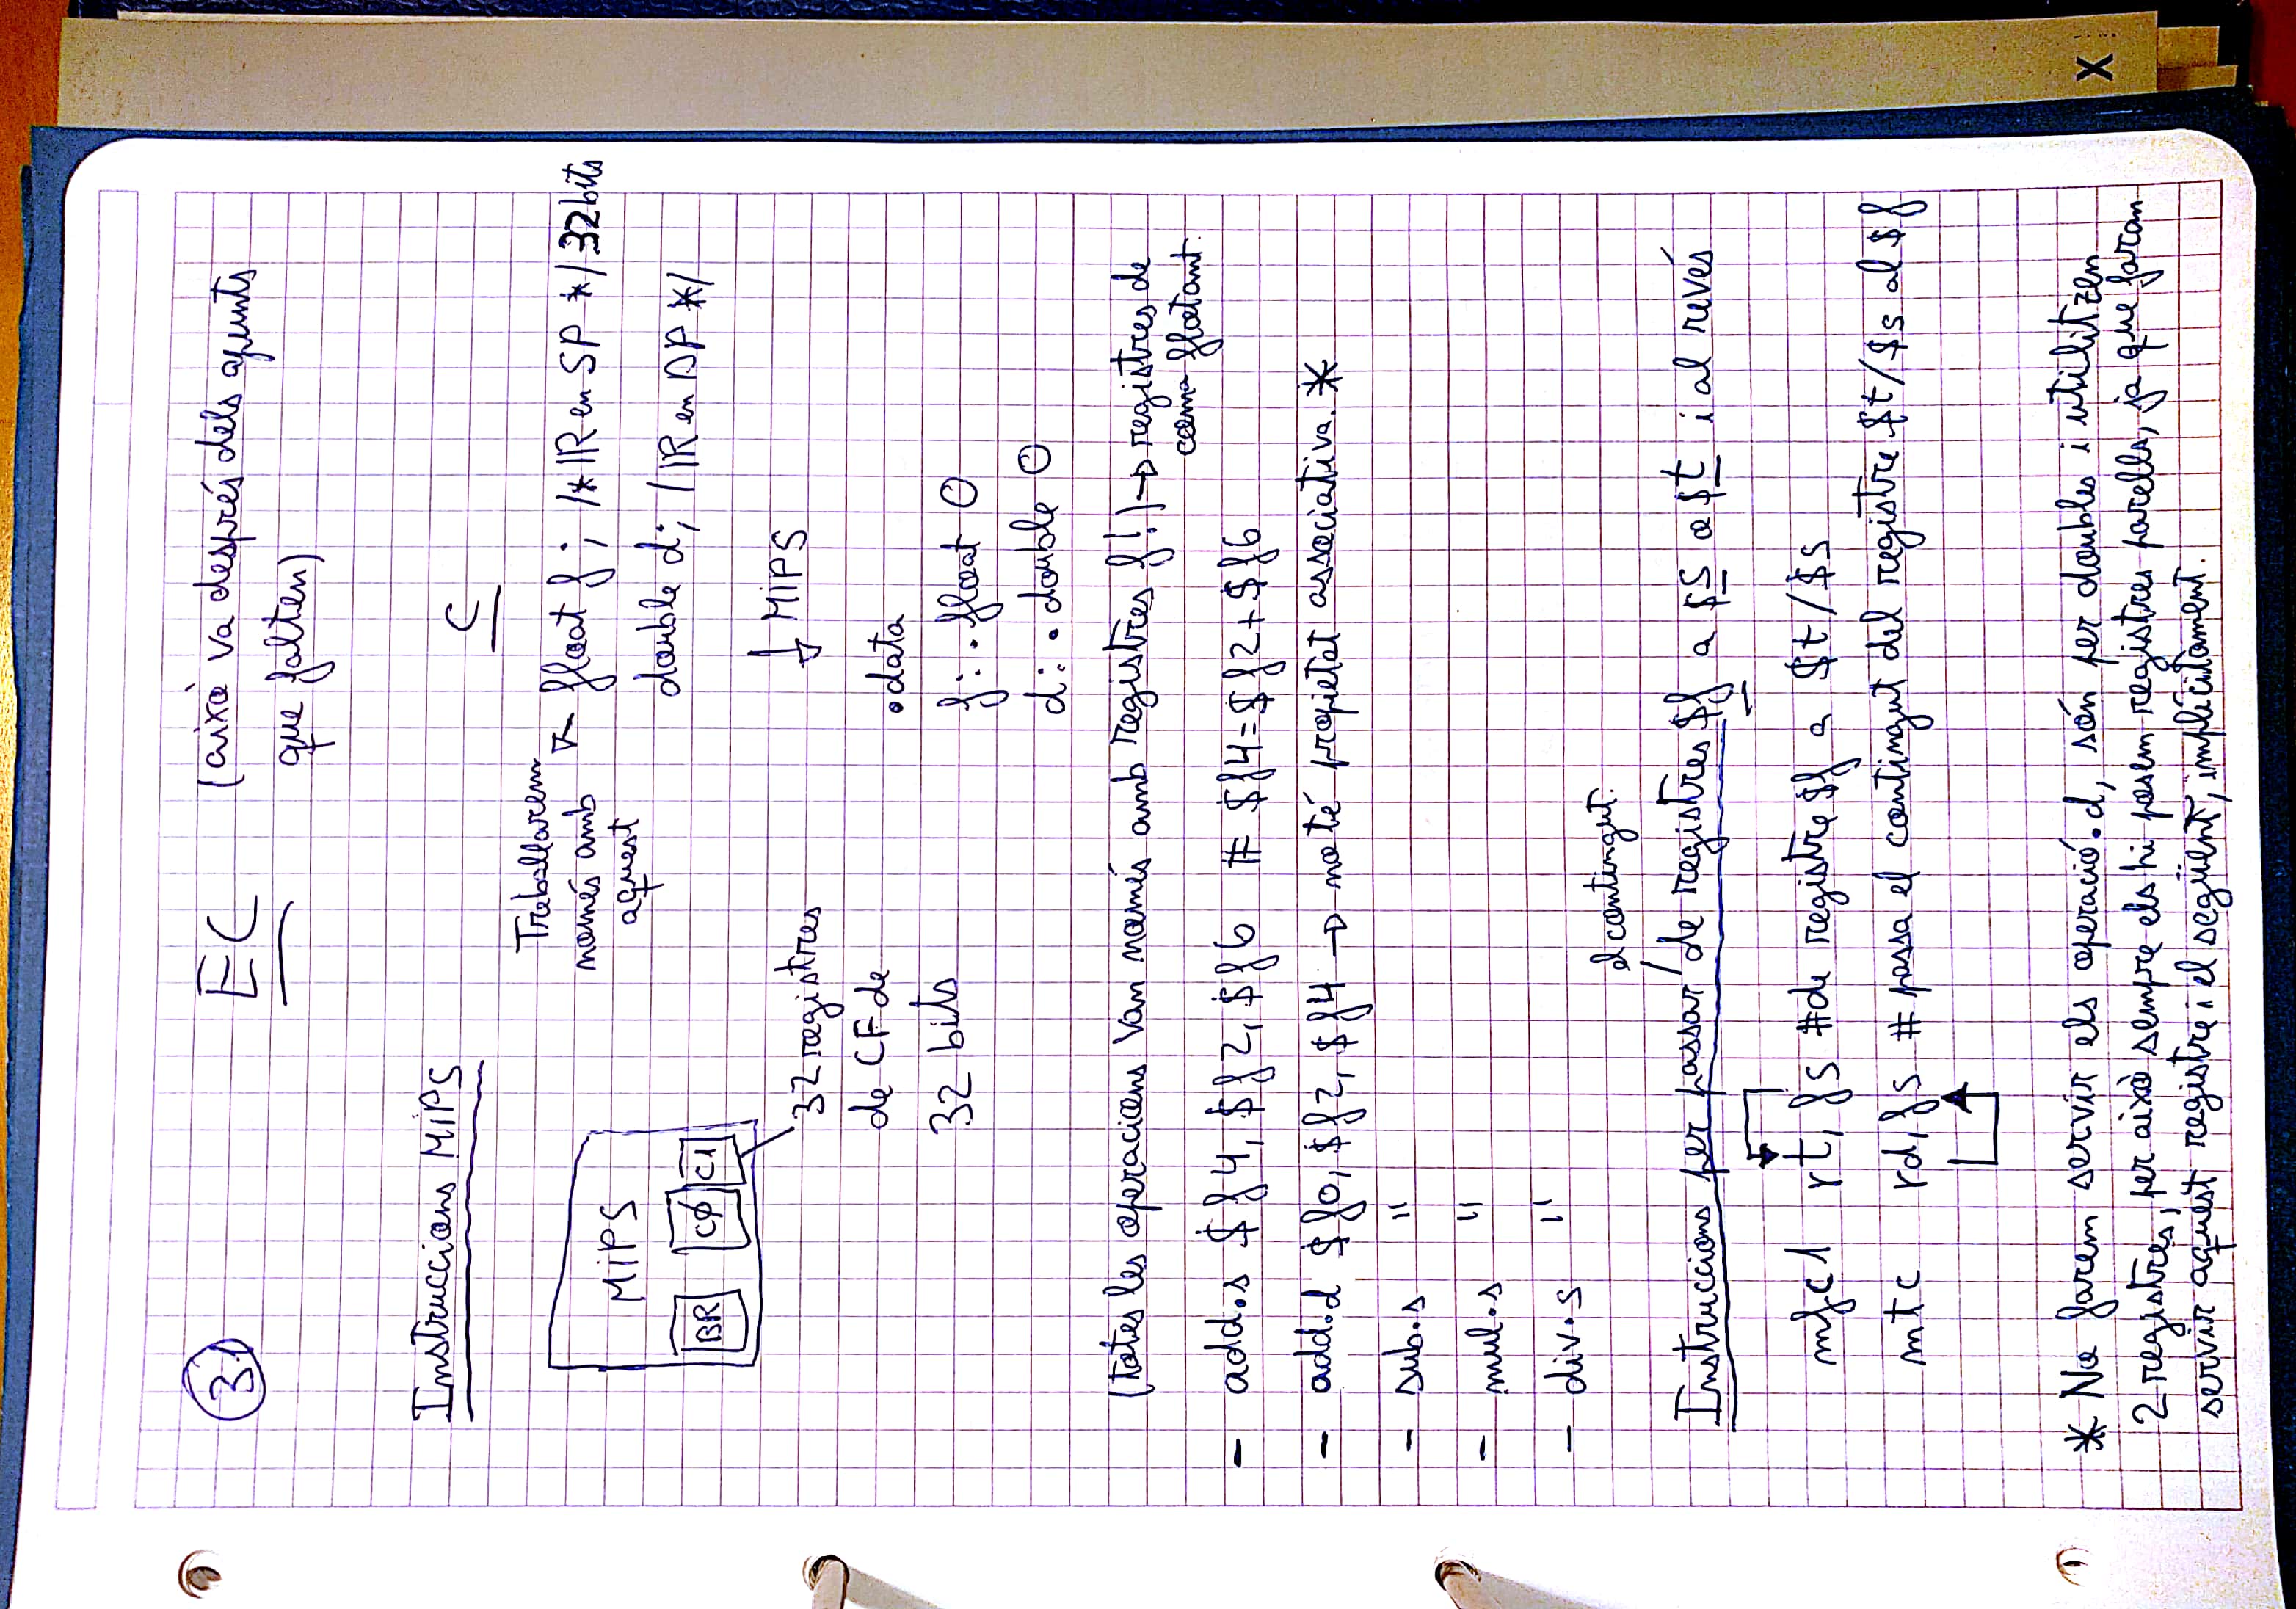 31
EC
(això va després dels apunts
que falten)
Instruccions MIPS
C
MIPS
BR CØ C1
32 registres
de CF de
32 bits
Treballarem
només amb
aquest
float f; /* IR en SP */ 32 bits
double d; / IR en DP */
MIPS
.data
f: .float 0
d: .double 0
(totes les operacions van només amb registres f!) → registres de
coma flotant.
- add.s $f4, $f2, $f6 # $f4=$f2+$f6
- add.d $f0, $f2, $f4 → no té propietat associativa. *
- sub.s "
- mul.s "
- div.s "
el contingut.
Instruccions per passar de registres $f a $s o $t i al revés
mfc1 rt, fs #de registre $f a $t/$s
mtc rd, fs # passa el contingut del registre $t/$s al $f
* No farem servir els operació.d, són per doubles i utilitzen
2 registres, per això sempre els hi posem registres parells, ja que faran
servir aquest registre i el següent, implícitament.
X